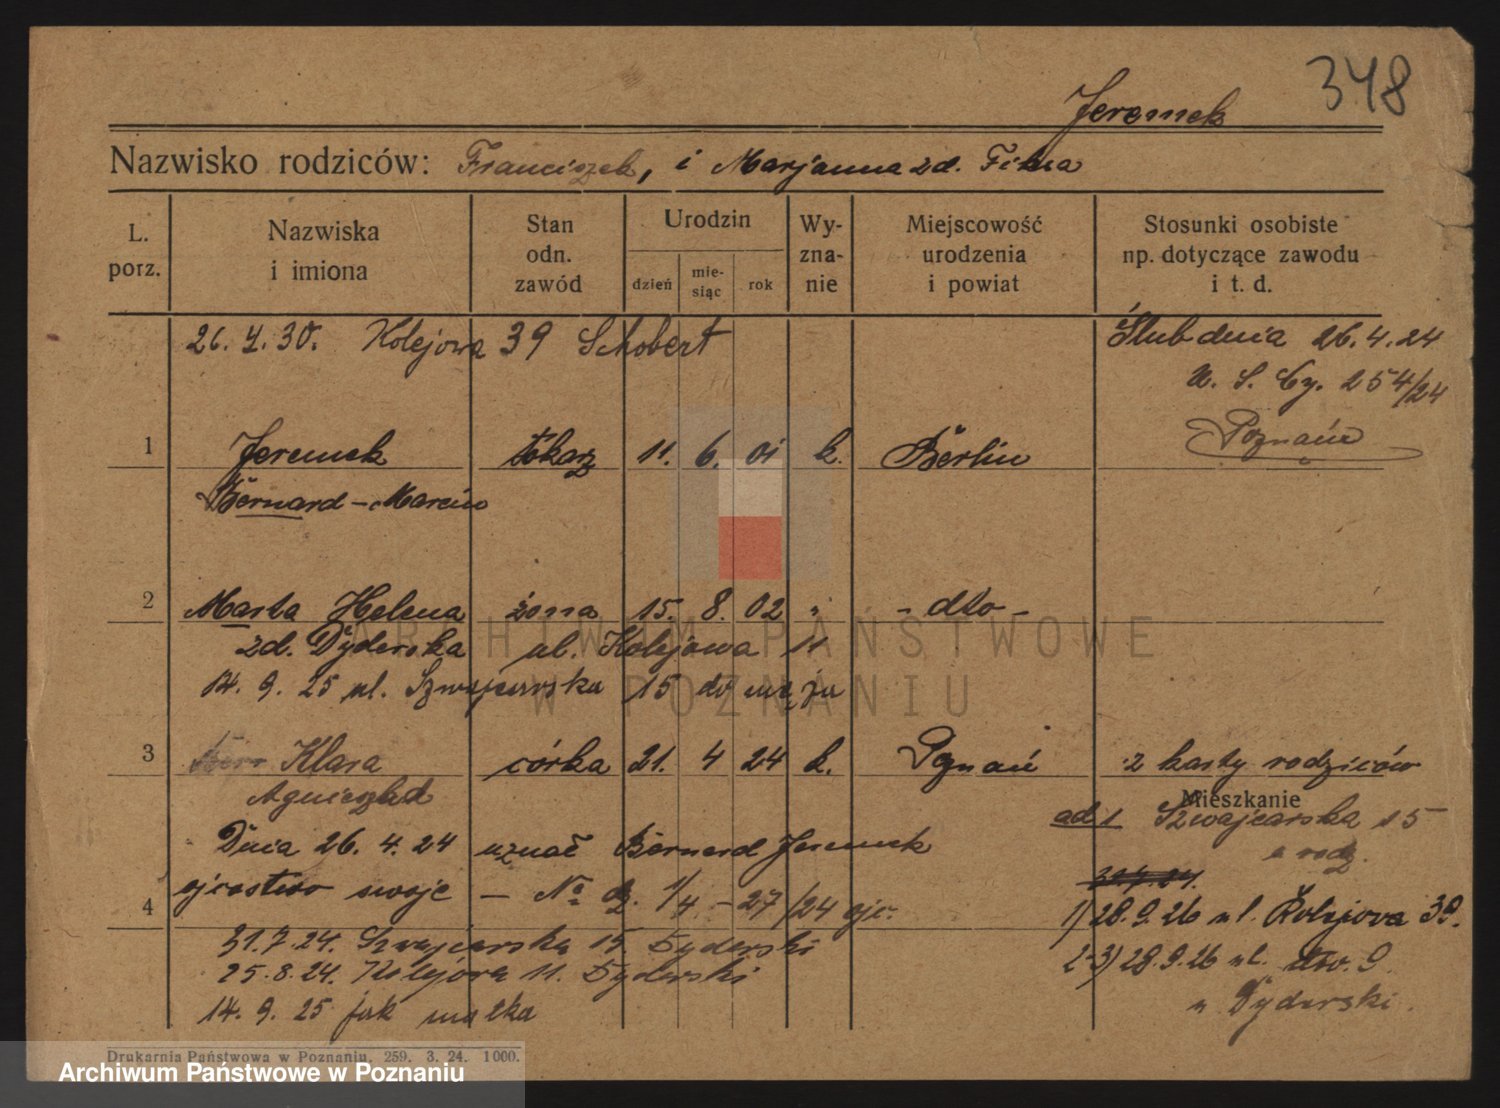 348
Jeremek
Nazwisko rodziców: Franciszek, i Marjanna zd.
L. porz.
Nazwiska i imiona
Stan odn. zawód
Urodzin
dzień
mie-siąc
rok
Wy-zna-nie
Miejscowość urodzenia i powiat
Stosunki osobiste np. dotyczące zawodu i t. d.
30. Kolejowa 39 Schobert
Ślub dnia 26.4.24
U. S. 254/24
Poznań
1 Jeremek tokarz 11. 6. 01 k. Berlin
Bernard-Marcin
2 Marta Helena żona 15. 8. 02 " - dto -
zd. Dyderska ul. Kolejowa 11
14. 9. 25 ul. Szwajcarska 15 do męża
3 Klara córka 21. 4 24 k. Poznań z karty rodziców
Agnieszka
Mieszkanie
ad 1 Szwajcarska 15
u rodz.
Dnia 26. 4. 24 uznał Bernard Jeremek
ojcostwo swoje - No 1/4 - 27/24
4
31.7.24. Szwajcarska 15 Dyderski
25.8.24. Kolejowa 11. Dyderski
14. 9. 25 jak matka
1) 28.9.26 ul. Kolejowa 39.
2-3) 28.9.26 ul. dto. 9
u Dyderski.
Drukarnia Państwowa w Poznaniu, 259. 3. 24. 1000.
ARCHIWUM PAŃSTWOWE
W POZNANIU
Archiwum Państwowe w Poznaniu